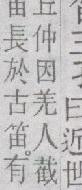 曰近世
丘仲因羌人截
笛長於古笛有